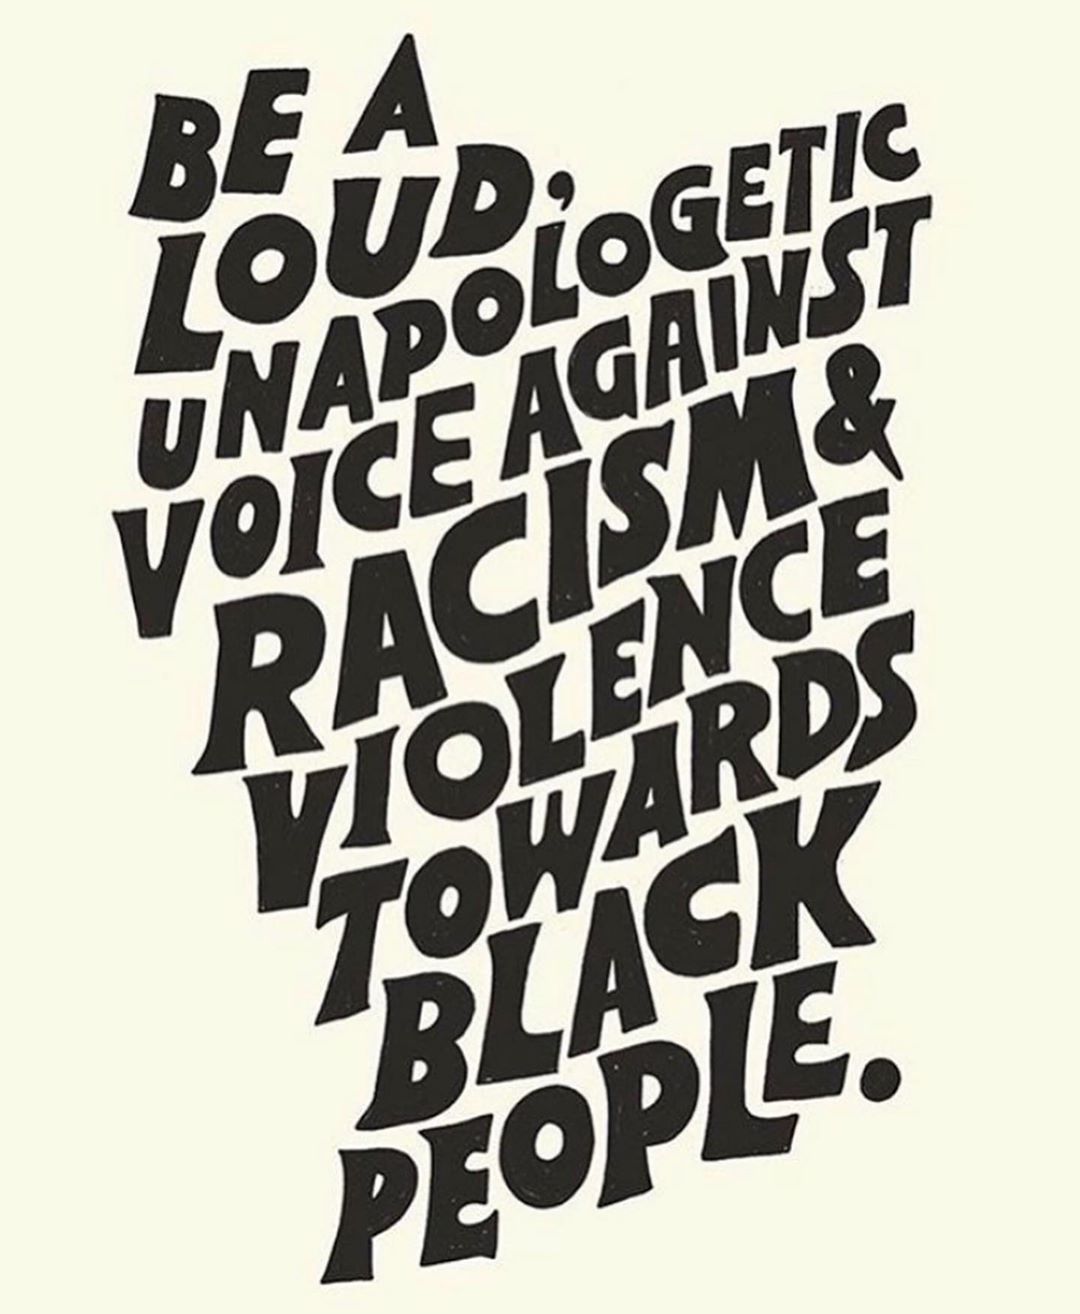 BE A
LOUD,
UNAPOLOGETIC
VOICE AGAINST
RACISM &
VIOLENCE
TOWARDS
BLACK
PEOPLE.